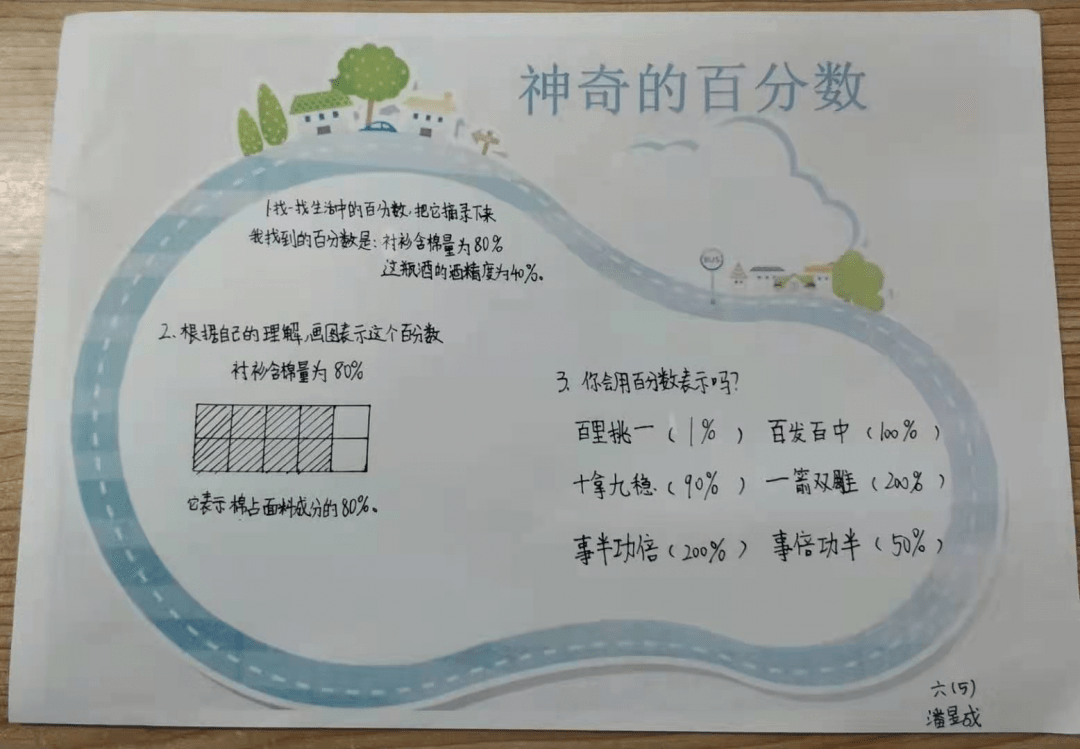 神奇的百分数
1.找一找生活中的百分数,把它摘录下来
我找到的百分数是:衬衫含棉量为80%
这瓶酒的酒精度为40%。
BUS
2.根据自己的理解,画图表示这个百分数
衬衫含棉量为80%
它表示棉占面料成分的80%。
3.你会用百分数表示吗?
百里挑一(1%) 百发百中(100%)
十拿九稳(90%) 一箭双雕(200%)
事半功倍(200%) 事倍功半(50%)
六(5)
潘昱成